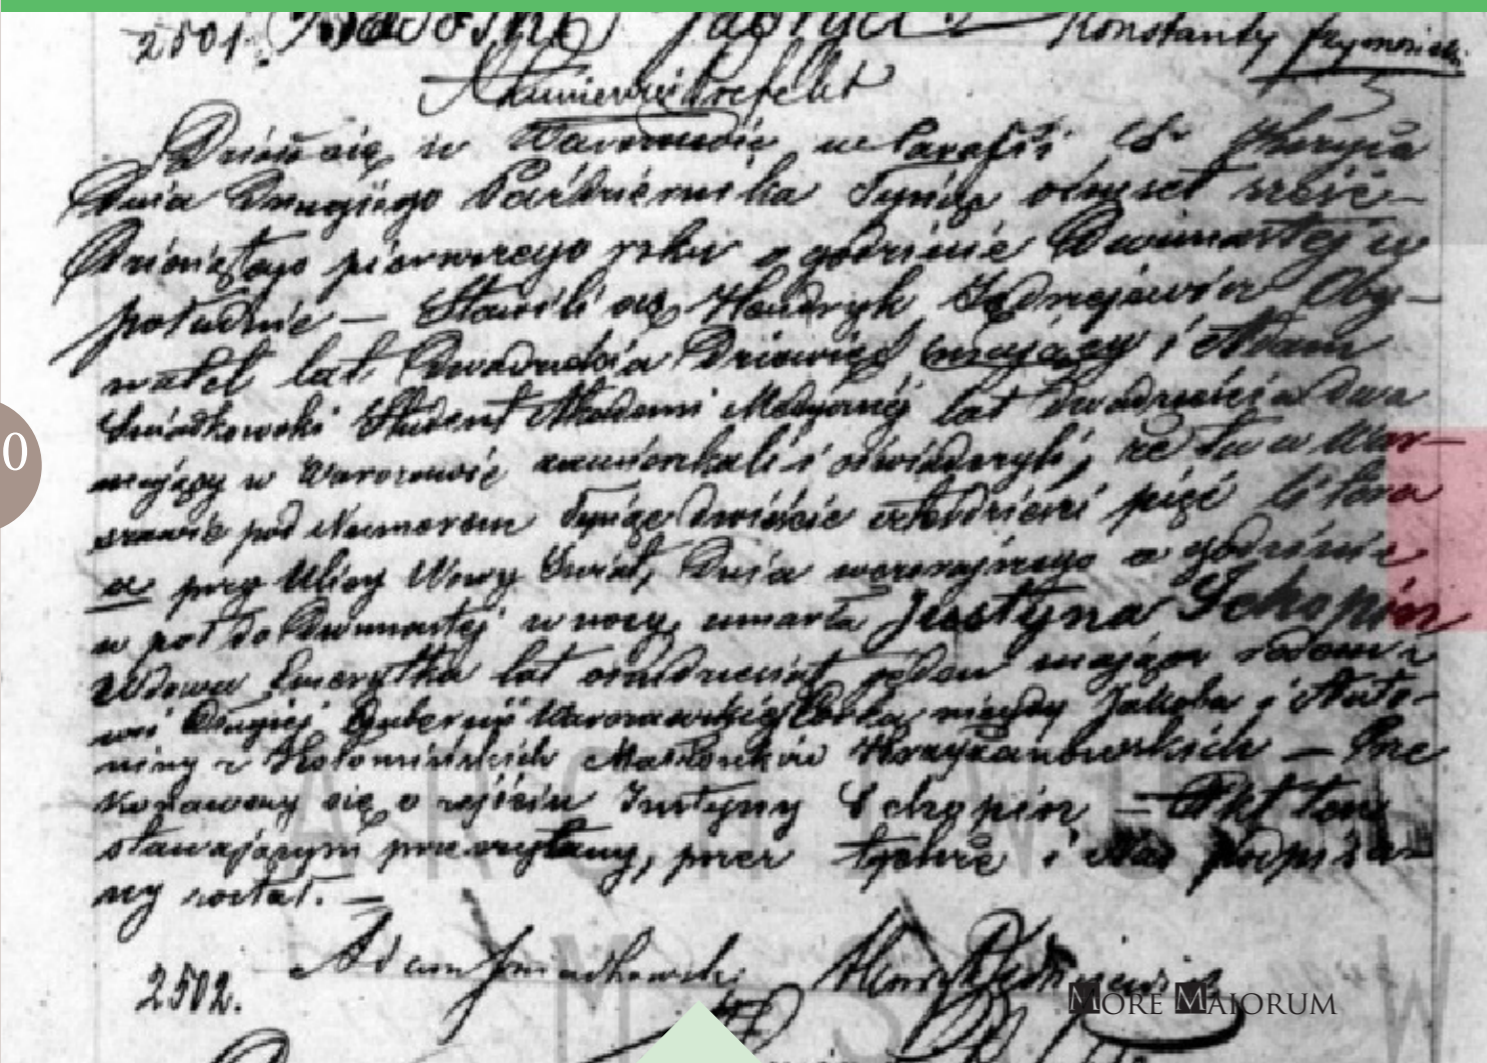 2501.
Konstanty
Prefekt
Działo się w Warszawie w Parafii Sw. Krzyża
Dnia Drugiego Października Tysiąc ośmset sześć-
Dziesiątego pierwszego roku o godzinie Dwunastej w
południe — Stawili się, Hendryk Jędrzejewicz Oby-
watel lat Dwadzieścia Dziewięć mający i Adam
Śniadkowski Student Akademi Medycznej lat dwadzieścia dwa
mający w Warszawie zamieszkali i oświadczyli, że tu w War-
szawie pod Numerem Tysiąc Dwieście pięć litera
a przy Ulicy Nowy Świat, Dnia wczorajszego o godzinie
w poł do Dwunastej w nocy, umarła Justyna Schopin
Wdowa Emerytka lat osiemdziesiąt jeden mająca rodem z
wsi Długiej Gubernii Warszawskiej Córka między Jakóba i Anto-
niny z Kołomińskich Małżonków Krzyżanowskich — Prze
konawszy się o zejściu Justyny Schopin — Akt ten
stawającym przeczytany, przez tychże i Nas podpisa-
ny został. —
Adam Śniadkowski Jędrzejewicz
2502.
MORE MAIORUM
0
ARCHIWUM
M S W